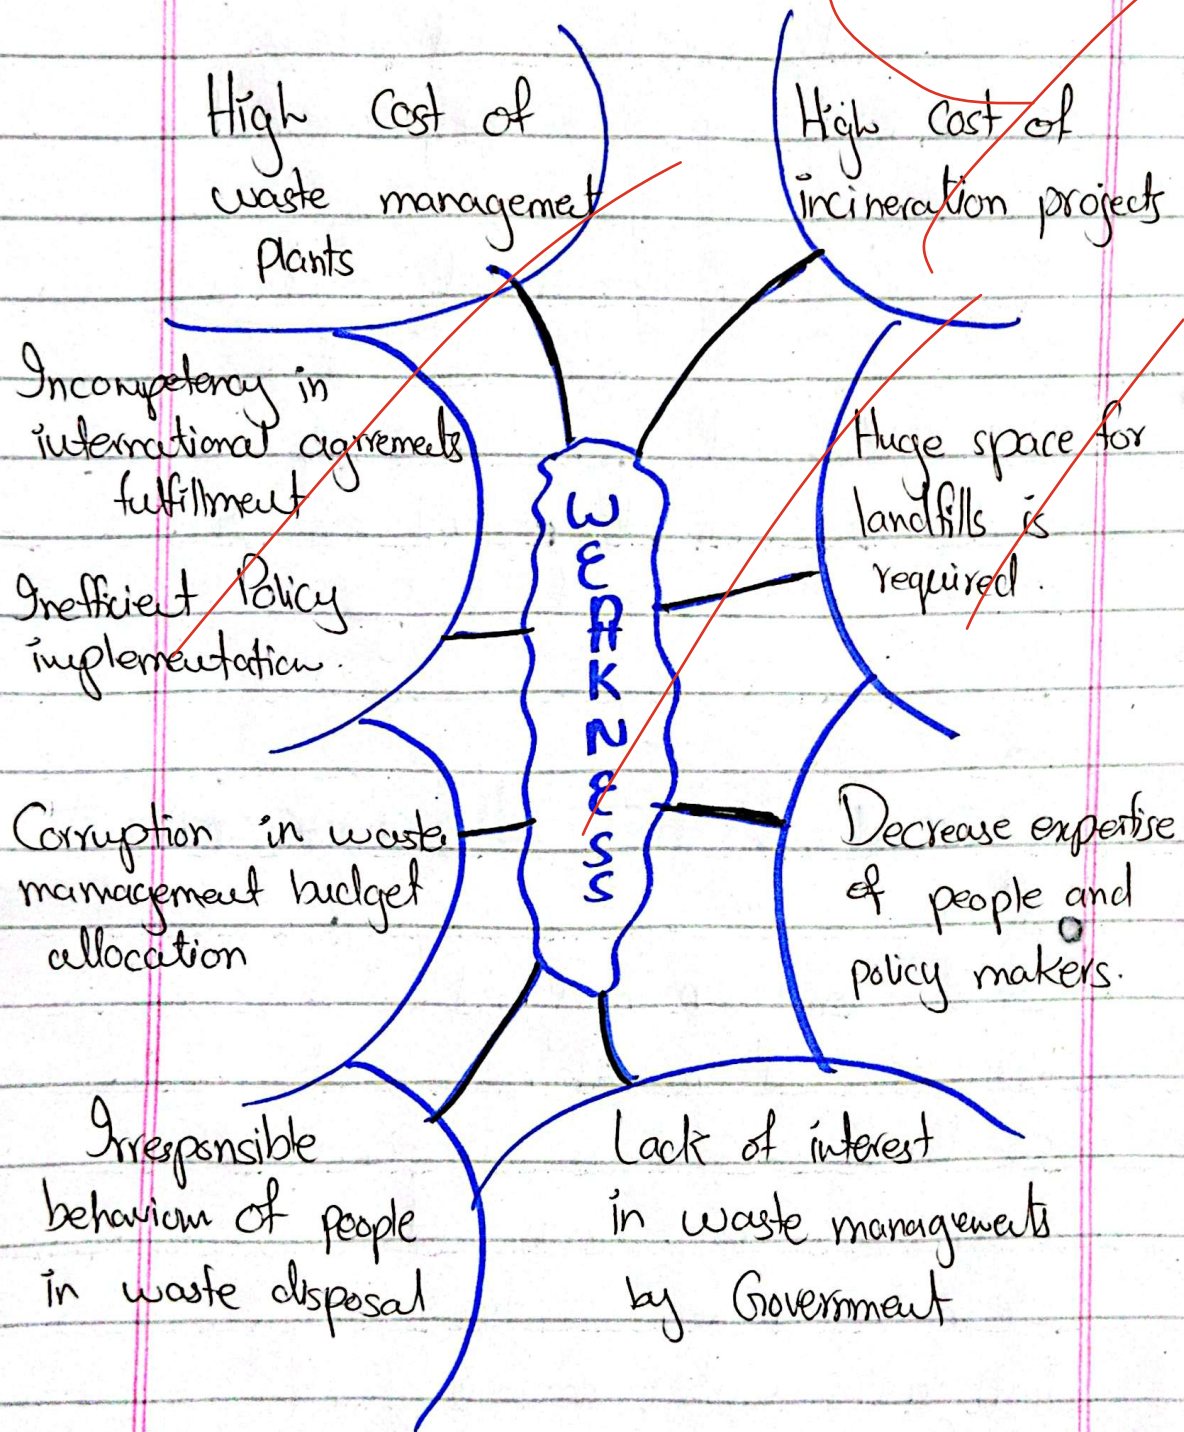 High Cost of
waste managemet
plants
High Cost of
incineration projects
Incompetency in
international agrrements
fulfillment
Inefficient Policy
implementation.
Huge space for
landfills is
required.
WEAKNESS
Corruption in waste
management budget
allocation
Decrease expertise
of people and
policy makers.
Irresponsible
behaviour of people
in waste disposal
Lack of interest
in waste managements
by Government